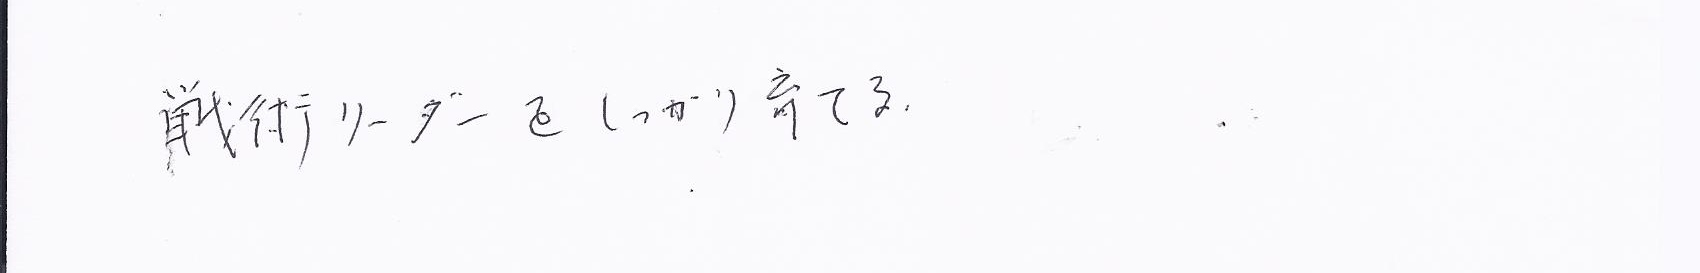 戦術リーダーをしっかり育てる.